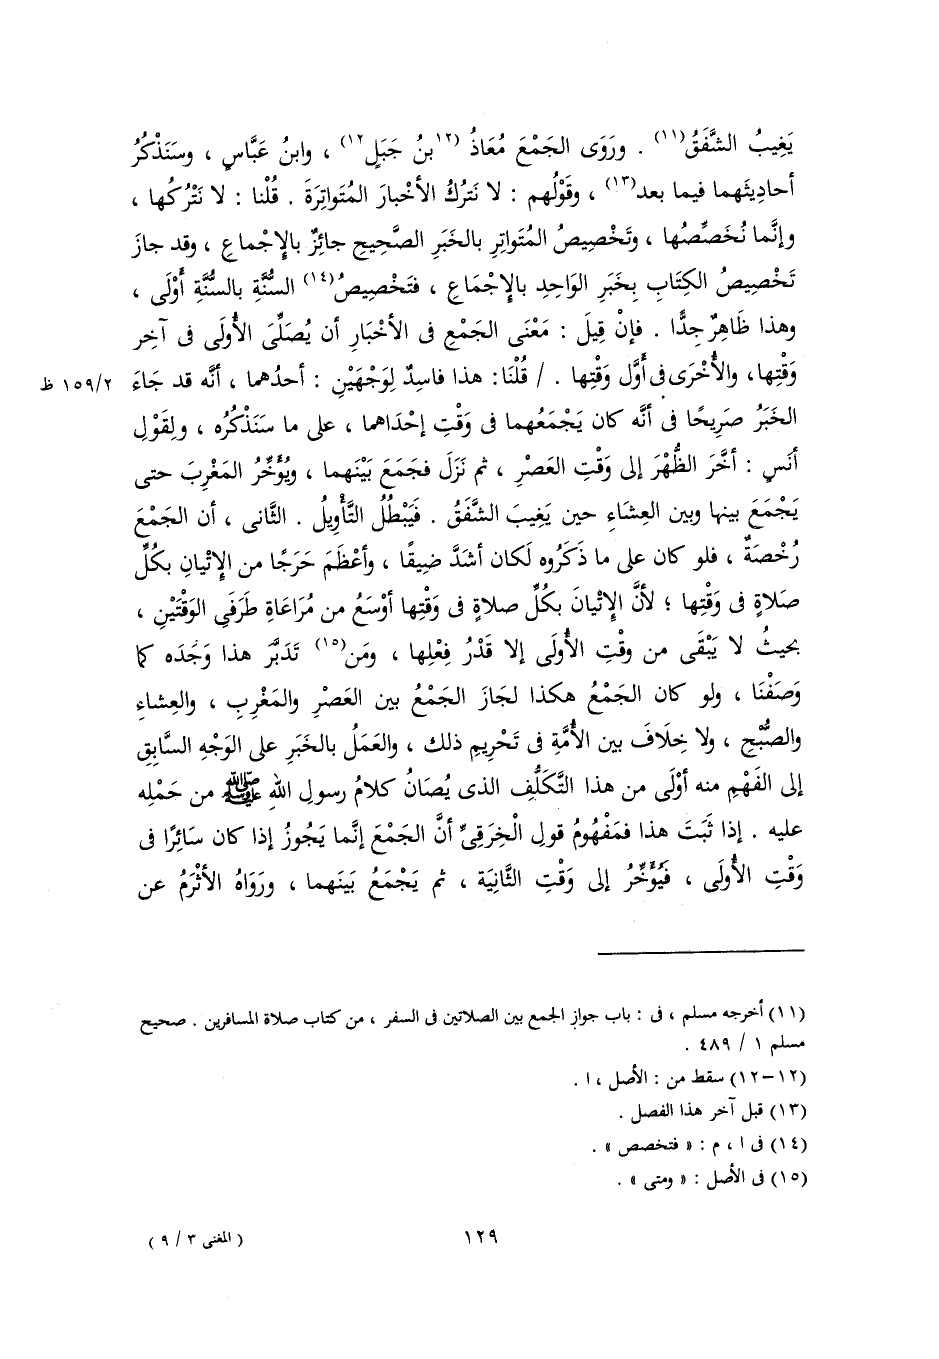 يَغِيبُ الشَّفَقُ(١١) . ورَوَى الجَمْعَ مُعَاذُ (١٢بنُ جَبَلٍ١٢) ، وابنُ عَبَّاسٍ ، وسَنَذْكُرُ
أحادِيثَهما فيما بعد(١٣) ، وقَوْلُهم : لا نَتْرُكُ الأخْبارَ المُتَواتِرَةَ . قُلْنا : لا نَتْرُكُها ،
وإنَّما نُخَصِّصُها ، وتَخْصِيصُ المُتَواتِرِ بالخَبَرِ الصَّحِيحِ جائِزٌ بالإِجْماعِ ، وقد جازَ
تَخْصِيصُ الكِتَابِ بِخَبَرِ الوَاحِدِ بالإِجْمَاعِ ، فتَخْصِيصُ(١٤) السُّنَّةِ بالسُّنَّةِ أَوْلَى ،
وهذا ظَاهِرٌ جِدًّا . فإنْ قِيلَ : مَعْنَى الجَمْعِ فى الأخْبَارِ أن يُصَلِّىَ الأُولَى فى آخِرِ
وَقْتِها، والأُخْرَى فى أَوَّلِ وَقْتِها . / قُلْنَا: هذا فاسِدٌ لِوَجْهَيْنِ : أحدُهما ، أنَّه قد جَاءَ ١٥٩/٢ ظ
الخَبَرُ صَرِيحًا فى أنَّه كان يَجْمَعُهما فى وَقْتِ إحْدَاهما ، على ما سَنَذْكُرُه ، ولِقَوْلِ
أنَسٍ : أخَّرَ الظُّهْرَ إلى وَقْتِ العَصْرِ ، ثم نَزَلَ فجَمَعَ بَيْنَهما ، ويُؤَخِّرُ المَغْرِبَ حتى
يَجْمَعَ بينها وبين العِشاءِ حين يَغِيبَ الشَّفَقُ . فيَبْطُلُ التَّأْوِيلُ . الثَّانى ، أن الجَمْعَ
رُخْصَةٌ ، فلو كان على ما ذَكَرُوه لَكان أشَدَّ ضِيقًا ، وأعْظَمَ حَرَجًا من الإِتْيانِ بكُلِّ
صَلاةٍ فى وَقْتِها ؛ لأنَّ الإِتْيانَ بكُلِّ صلاةٍ فى وَقْتِها أوْسَعُ من مُرَاعَاةِ طَرَفَىِ الوَقْتَيْنِ ،
بحيثُ لا يَبْقَى من وقْتِ الأُولَى إلا قَدْرُ فِعْلِها ، ومَن(١٥) تَدَبَّرَ هذا وَجَدَه كما
وَصَفْنَا ، ولو كان الجَمْعُ هكذا لجَازَ الجَمْعُ بين العَصْرِ والمَغْرِبِ ، والعِشاءِ
والصُّبْحِ ، ولا خِلَافَ بين الأُمَّةِ فى تَحْرِيمِ ذلك ، والعَمَلُ بالخَبَرِ على الوَجْهِ السَّابِقِ
إلى الفَهْمِ منه أوْلَى من هذا التَّكَلُّفِ الذى يُصَانُ كلامُ رسولِ اللهِ ﷺ من حَمْلِه
عليه . إذا ثَبَتَ هذا فمَفْهُومُ قولِ الْخِرَقِىِّ أنَّ الجَمْعَ إنَّما يَجُوزُ إذا كان سَائِرًا فى
وَقْتِ الأُولَى ، فَيُؤَخِّرُ إلى وَقْتِ الثَّانِيَة ، ثم يَجْمَعُ بَينَهما ، ورَوَاهُ الأثْرَمُ عن
(١١) أخرجه مسلم ، فى : باب جواز الجمع بين الصلاتين فى السفر ، من كتاب صلاة المسافرين . صحيح
مسلم ١ / ٤٨٩ .
(١٢–١٢) سقط من : الأصل ، ا .
(١٣) قبل آخر هذا الفصل .
(١٤) فى ا ، م : « فتخصص » .
(١٥) فى الأصل : « ومتى » .
١٢٩
( المغنى ٣ / ٩ )